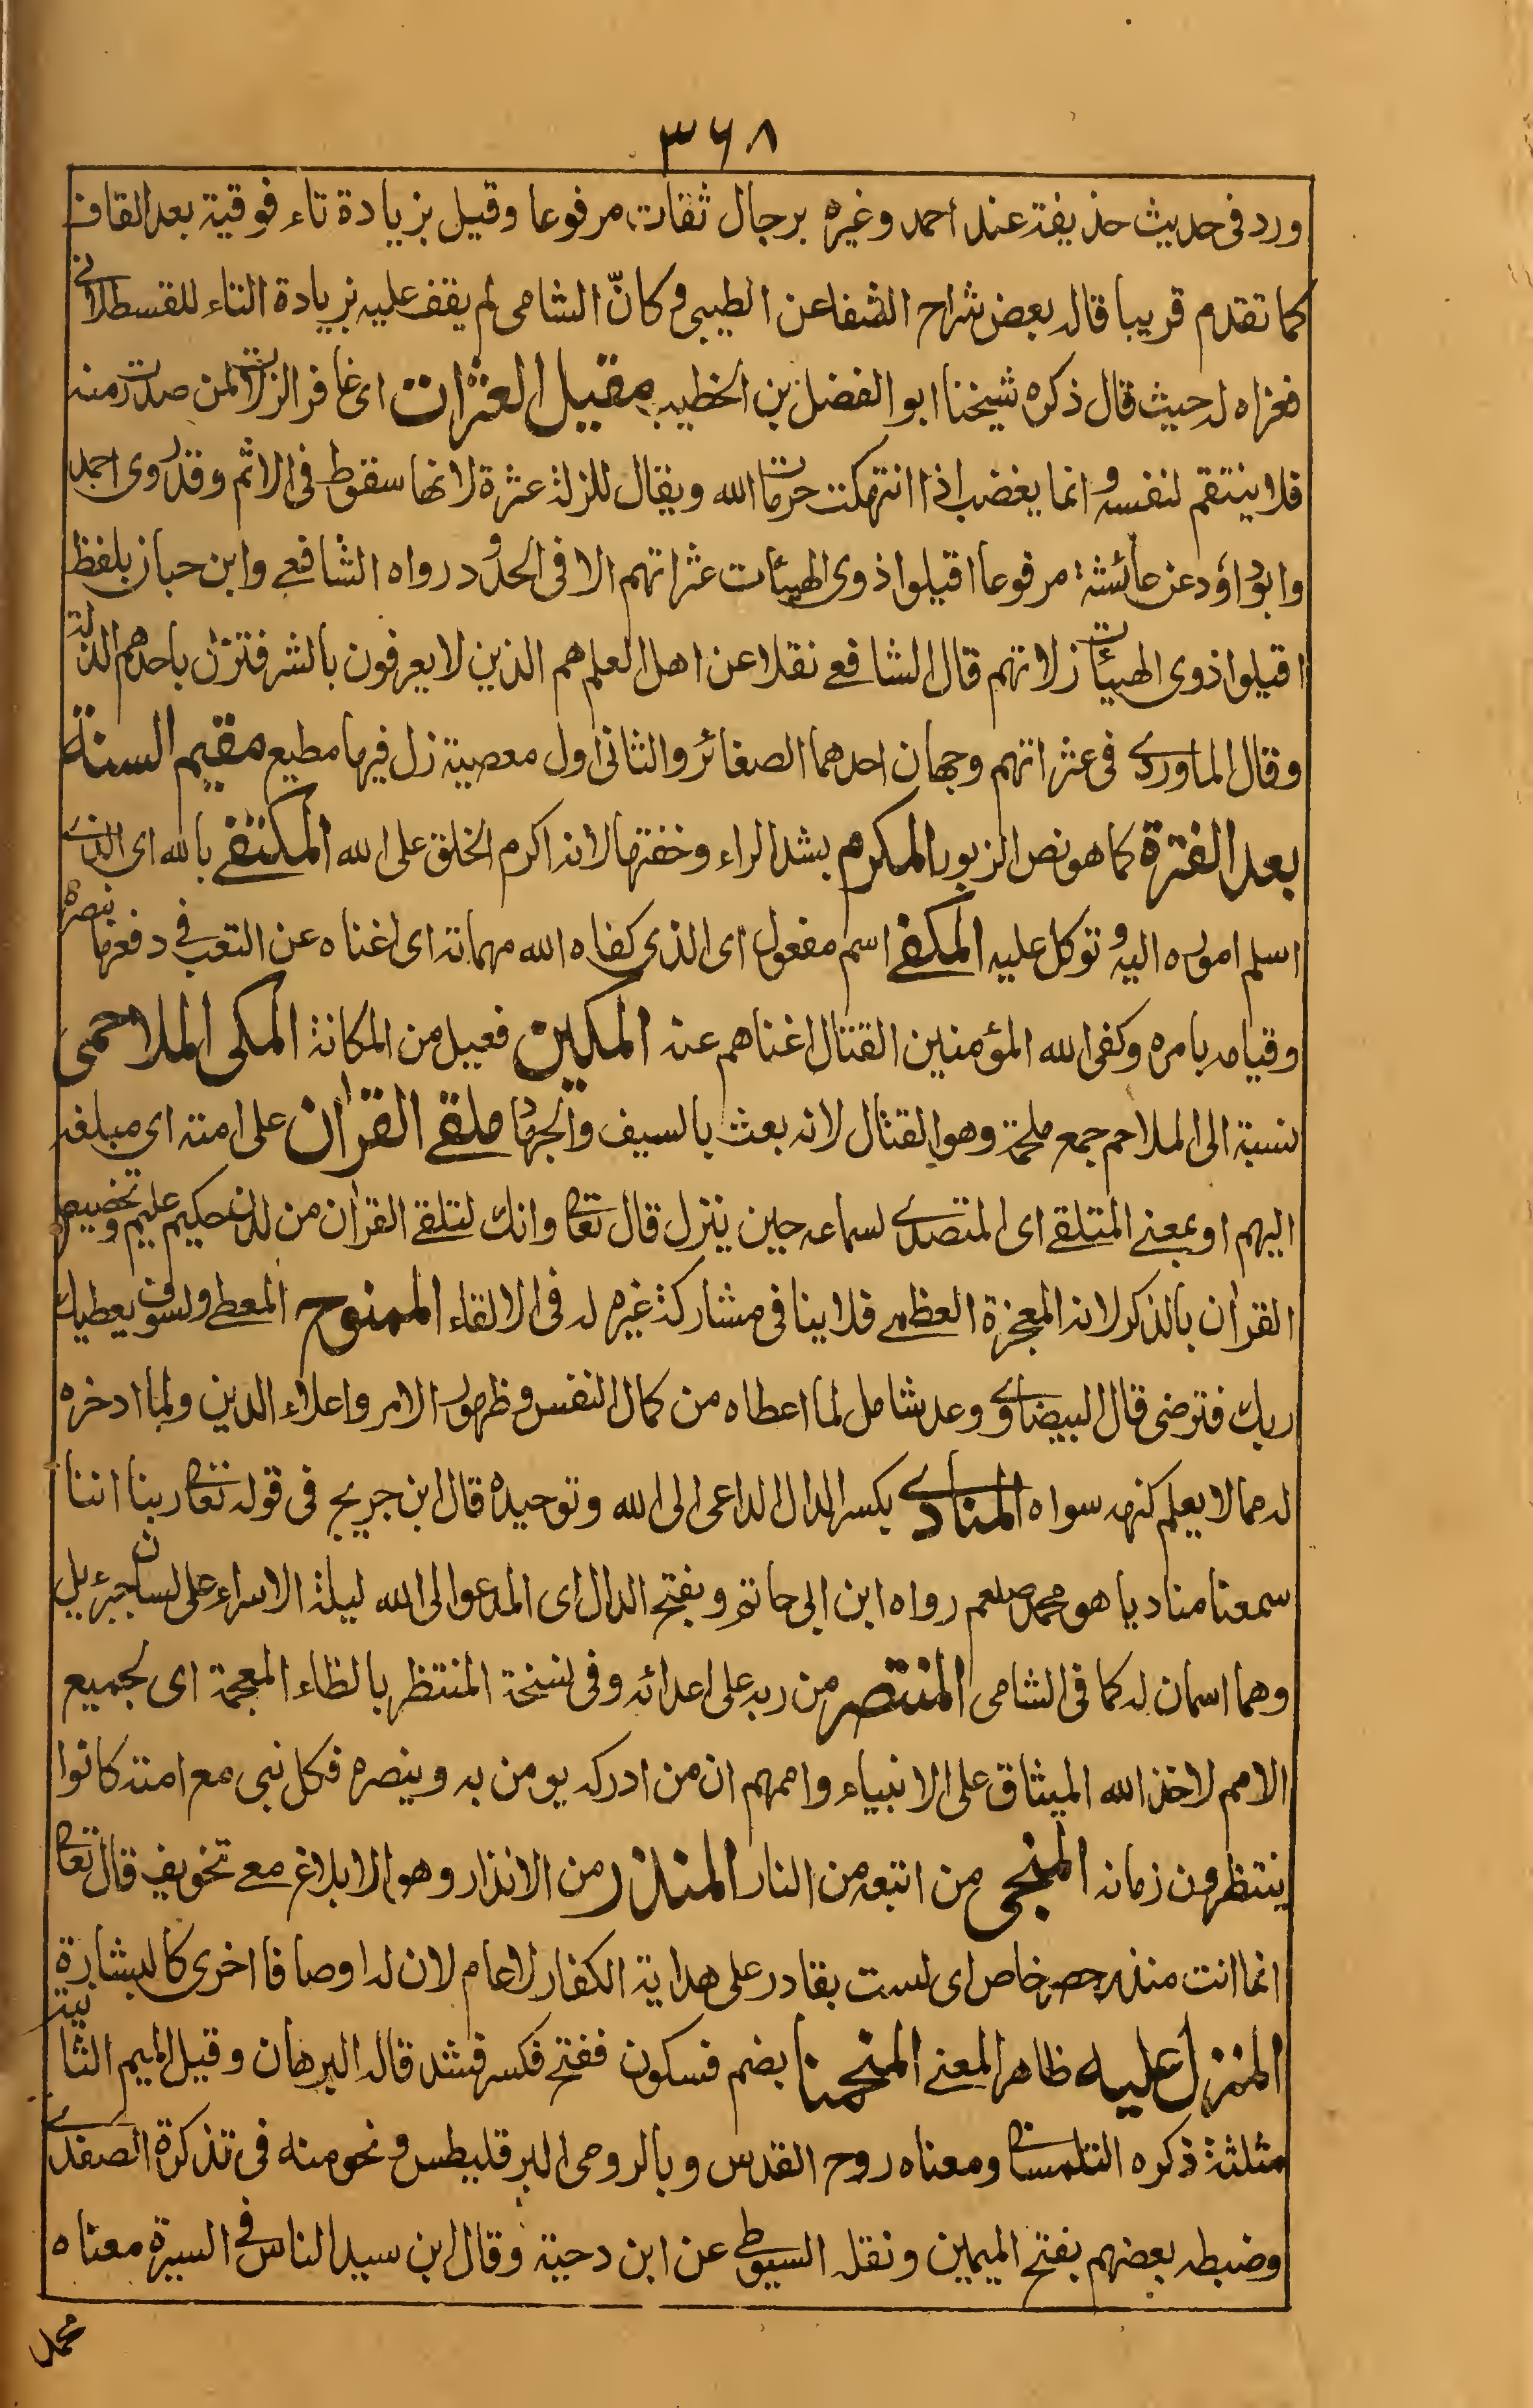 ٣٦٨
ورد فى حديث حذيفة عند احمد وغيره برجال ثقات مرفوعا وقيل بزيادة تاء فوقية بعد القاف
كما تقدم قريبا قاله بعض شراح الشفا عن الطيبى وكانّ الشامى لم يقف عليه بزيادة التاء للقسطلانى
فعزاه له حيث قال ذكره شيخنا ابو الفضل بن الخطيب مقيل العثرات اى غافر الزلات لمن صدرت منه
فلا ينتقم لنفسه وانما يغضب اذا انتهكت حرمات الله ويقال للزلة عثرة لانها سقوط فى الاثم وقد روى احمد
وابو داؤد عن عائشة مرفوعا اقيلوا ذوى الهيئات عثراتهم الا فى الحدود رواه الشافعے وابن حبان بلفظ
اقيلوا ذوى الهيئات زلاتهم قال الشافعے نقلا عن اهل العلم هم الذين لا يعرفون بالشر فتزل باحدهم الزلة
وقال الماوردے فى عثراتهم وجهان احدهما الصغائر والثانى اول معصية زل فيها مطيع مقيم السنة
بعد الفترة كما هو نص الزبور المكرم بشد الراء وخفتها لانه اكرم الخلق على الله المكتفے بالله اى الذے
اسلم اموره اليه وتوكل عليه المكفے اسم مفعول اى الذى كفاه الله مهماته اى اغناه عن التعب فے دفعها بنصره
وقيامه بامره وكفى الله المؤمنين القتال اغناهم عنه المكين فعيل من المكانة المكى الملاحمى
نسبة الى الملاحم جمع ملحمة وهو القتال لانه بعث بالسيف والجهاد ملقے القرٰان على امته اى مبلغه
اليهم او بمعنے المتلقے اى المتصدے لسماعه حين ينزل قال تعا وانك لتلقے القرٰان من لدن حكيم عليم وتخصيص
القرٰان بالذكر لانه المعجزة العظمے فلا ينافى مشاركة غيره له فى الالقاء الممنوح المعطے ولسوف يعطيك
ربك فترضى قال البيضاوے وعد شامل لما اعطاه من كمال النفس وظهور الامر واعلاء الدين ولما ادخره
له مما لا يعلم كنهه سواه المنادے بكسر الدال الداعى الى الله وتوحيده قال ابن جريج فى قوله تعا ربنا اننا
سمعنا مناديا هو محمد صلعم رواه ابن ابى حاتم وبفتح الدال اى المدعو الى الله ليلة الاسراء على لسان جبرئيل
وهما اسمان له كما فى الشامى المنتصر من ربه على اعدائه وفى نسخة المنتظر بالظاء المعجمة اى لجميع
الامم لاخذ الله الميثاق على الانبياء واممهم ان من ادركه يومن به وينصره فكل نبى مع امته كانوا
ينتظرون زمانه المنجى من اتبعه من النار المنذر من الانذار وهو الابلاغ مع تخويف قال تعا
انما انت منذر حصر خاص اى لست بقادر على هداية الكفار لا عام لان له اوصافا اخرى كالبشارة
المنزل عليه ظاهر المعنے المنحمنا بضم فسكون ففتح فكسر فشد قاله البرهان وقيل الميم الثانية
مثلثة ذكره التلمسانى ومعناه روح القدس وبالرومى البرقليطس ونحو منه فى تذكرة الصفدے
وضبطه بعضهم بفتح الميمين ونقله السيوطے عن ابن دحية وقال ابن سيد الناس فے السيرة معناه
محمد